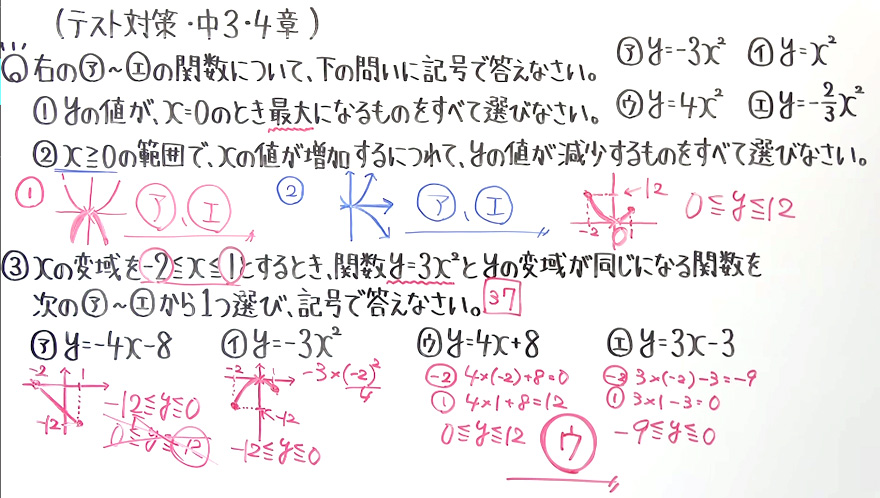 (テスト対策・中3・4章)
⑥右の㋐~㋓の関数について、下の問いに記号で答えなさい。
㋐y=-3x² ㋑y=x²
㋒y=4x² ㋓y=-2/3x²
①yの値が、x=0のとき最大になるものをすべて選びなさい。
②x≧0の範囲で、xの値が増加するにつれて、yの値が減少するものをすべて選びなさい。
① ㋐、㋓
② ㋐、㋓
-2 0 1 12 0≦y≦12
③xの変域を-2≦x≦1とするとき、関数y=3x²とyの変域が同じになる関数を
次の㋐~㋓から1つ選び、記号で答えなさい。37
㋐y=-4x-8 ㋑y=-3x² ㋒y=4x+8 ㋓y=3x-3
-2 1 -12
-12≦y≦0
0≦y≦12
-2 1 -12
-3×(-2)²
4
-12≦y≦0
-2 4×(-2)+8=0
① 4×1+8=12
0≦y≦12
ウ
-2 3×(-2)-3=-9
① 3×1-3=0
-9≦y≦0